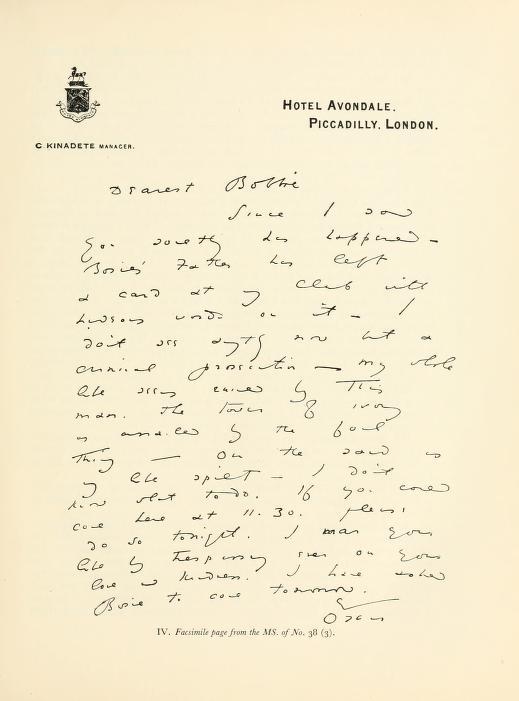 HOTEL AVONDALE.
PICCADILLY, LONDON.
C. KINADETE MANAGER.
Dearest Bobbie
Since I saw
you something has happened –
Bosie's Father has left
a card at my Club with
hideous words on it – I
don't see anything now but a
criminal prosecution – my whole
life seems ruined by this
man. The tower of ivory
is assailed by the foul
thing – On the sand is
my life spilt – I don't
know what to do. If you could
come here at 11.30. please
do so tonight. I mar your
life by trespassing ever on your
love and kindness. I have asked
Bosie to come tomorrow.
Oscar
IV. Facsimile page from the MS. of No. 38 (3).